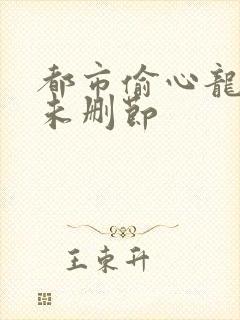 都市偷心龍
未删節
王東升